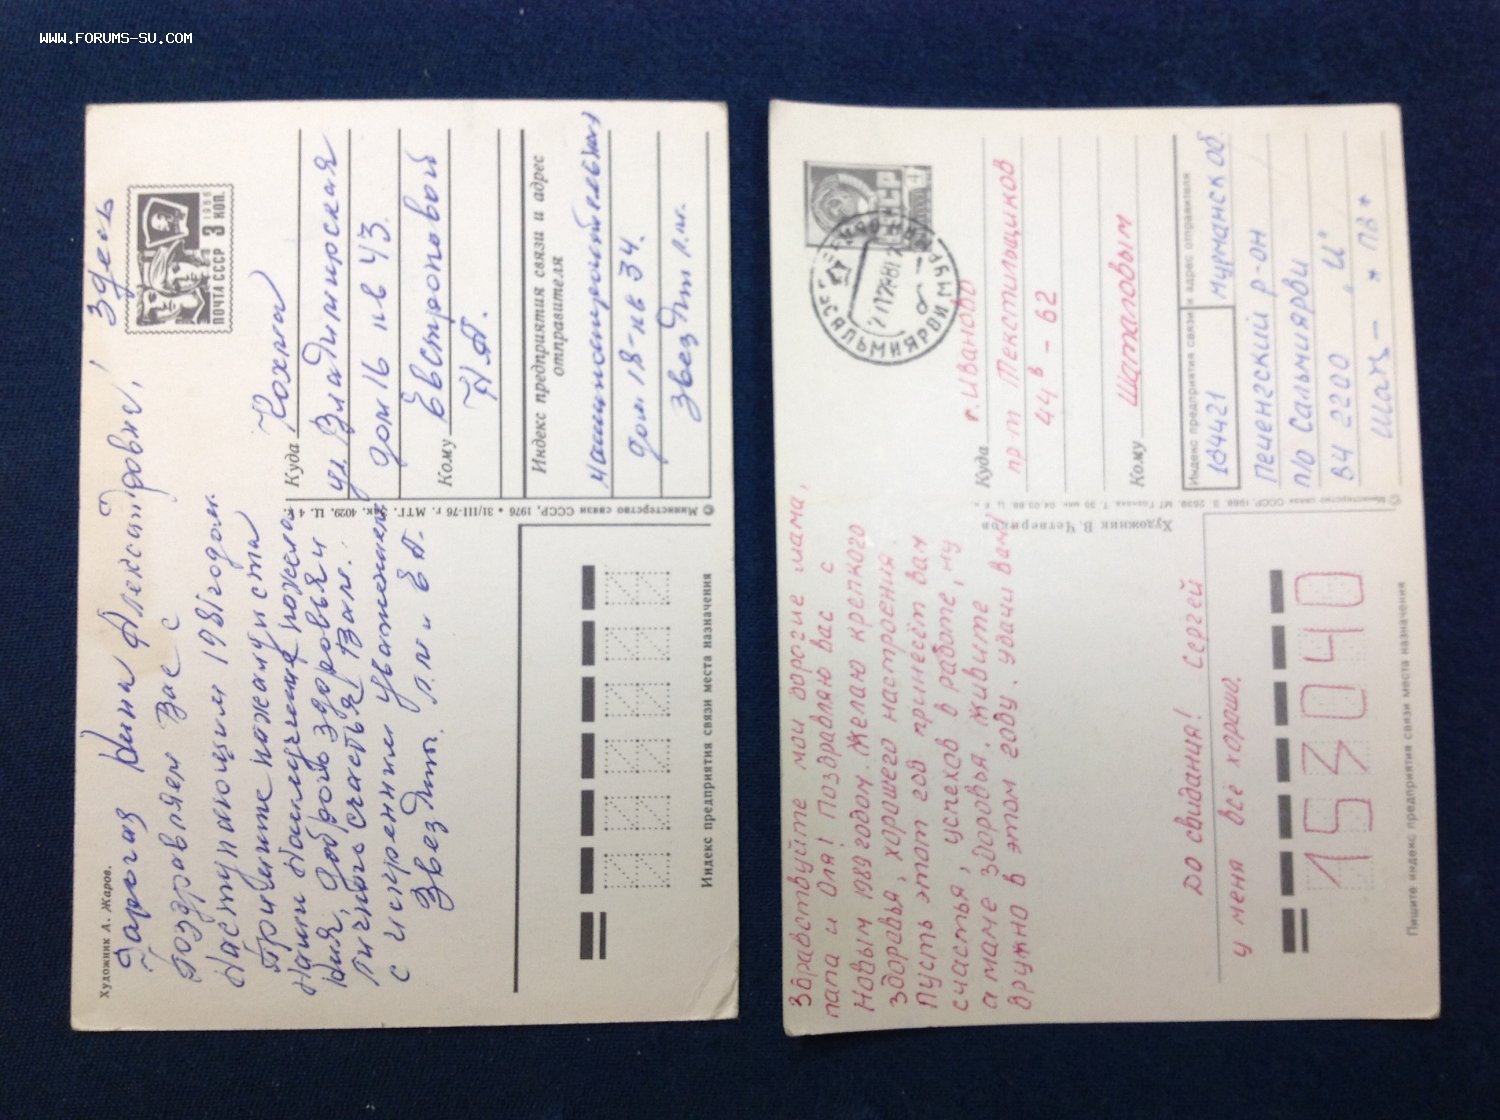 WWW.FORUMS-SU.COM
Художник А. Жаров.
Дорогая Нина Александровна!
Поздравляем Вас с
Наступающим 1981 годом.
Примите пожалуйста
Наши Наилучшие пожела
ния, доброго здоровья и
личного счастья Вам.
с искренним уважением
Звездт. Л.М и В А.
Здесь
ПОЧТА СССР
1966
3 КОП.
Куда Кохма
ул. Владимирская
дом 16 кв 43.
Кому Евстроповой
Н.А.
Индекс предприятия связи и адрес
отправителя
Машиностроительная
дом 18-кв 34.
Звездт Л.М.
© Министерство связи СССР, 1976 • 31/III-76 г. МТГ. Зак. 4029. Ц. 4 к.
Индекс предприятия связи места назначения
Здравствуйте мои дорогие мама,
папа и Оля! Поздравляю вас с
Новым 1989 годом. Желаю крепкого
здоровья, хорошего настроения.
Пусть этот год принесёт вам
счастья, успехов в работе, ну
а маме здоровья. Живите
дружно в этом году. удачи вам!
До свидания! Сергей
у меня всё хорошо.
Художник В. Четвериков
СССР
4
САЛЬМИЯРВИ МУРМ
Куда г. Иваново
пр-т Текстильщиков
44в - 62
Кому Шаталовым
Индекс предприятия связи и адрес отправителя
184421 Мурманская об.
Печенгский р-он
п/о Сальмиярви
ВЧ 2200 "И"
Шат — * ПВ *
© Министерство связи СССР, 1988
153040
Пишите индекс предприятия связи места назначения